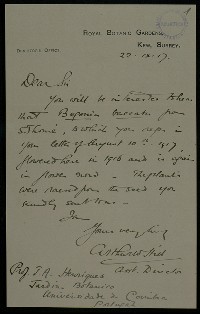 1
ROYAL BOTANIC GARDENS,
KEW, SURREY.
DIRECTOR'S OFFICE.
22-12-17.
Dear Sir
You will be interested to hear
that Begonia baccata from
St Thomé, to which you refer in
your letter of August 10th 1917
flowered here in 1916 and is again
in flower now. The plants
were raised from the seed you
kindly sent to us.
I am
Yours very truly
Arthur W. Hill
Asst. Director
Prof. J. A. Henriques
Jardim Botanico
Universidade de Coimbra
Portugal